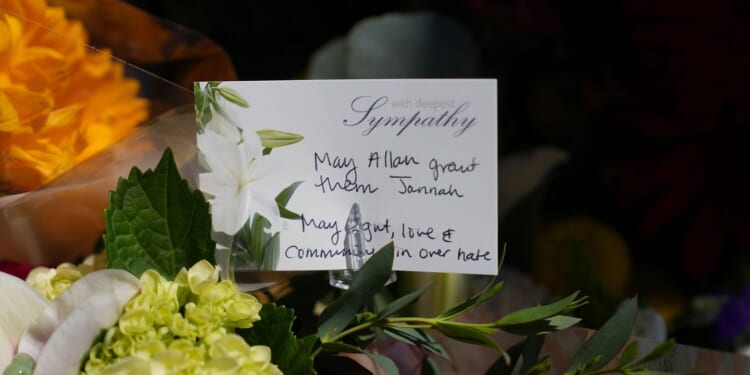 with deepest
Sympathy
May Allah grant
them Jannah
May love &
over hate